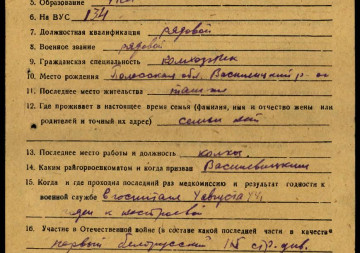 5. Образование
6. На ВУС 134
7. Должностная квалификация рядовой
8. Военное звание рядовой
9. Гражданская специальность колхозник
10. Место рождения обл. Василевицкий р-он
11. Последнее место жительства там-же
12. Где проживает в настоящее время семья (фамилия, имя и отчество жены или
родителей и точный их адрес) семьи нет
13. Последнее место работы и должность колхоз.
14. Каким райгорвоенкоматом и когда призван Василевицким
15. Когда и где проходил последний раз медкомиссию и результат годности к
военной службе в госпитале 4 августа 44г.
к строевой
16. Участие в Отечественной войне (в составе какой последней части и в качестве
первый белорусский стр. див.